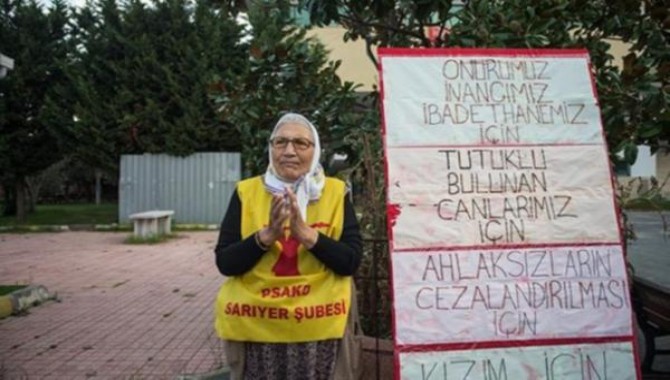 ONURUMUZ
İNANCIMIZ
İBADETHANEMİZ
İÇİN
TUTUKLU
BULUNAN
CANLARIMIZ
İÇİN
AHLAKSIZLARIN
CEZALANDIRILMASI
İÇİN
KIZIM İÇİN
PSAKD
SARIYER ŞUBESİ